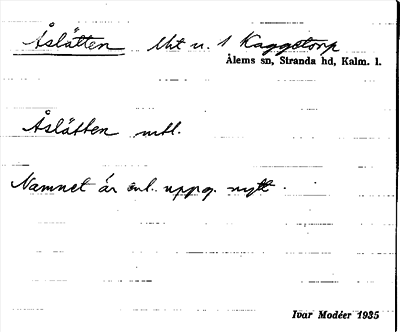 Åslätten lht u. 1 Kaggetorp
Ålems sn, Stranda hd, Kalm. l.
Åslätten mtl.
Namnet är enl. uppg. nytt.
Ivar Modéer 1935